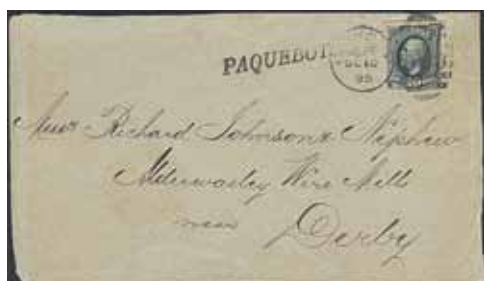 PAQUEBOT
DE 10
95
Messrs Richard Johnson & Nephew
Alderwasley Wire Mills
near
Derby